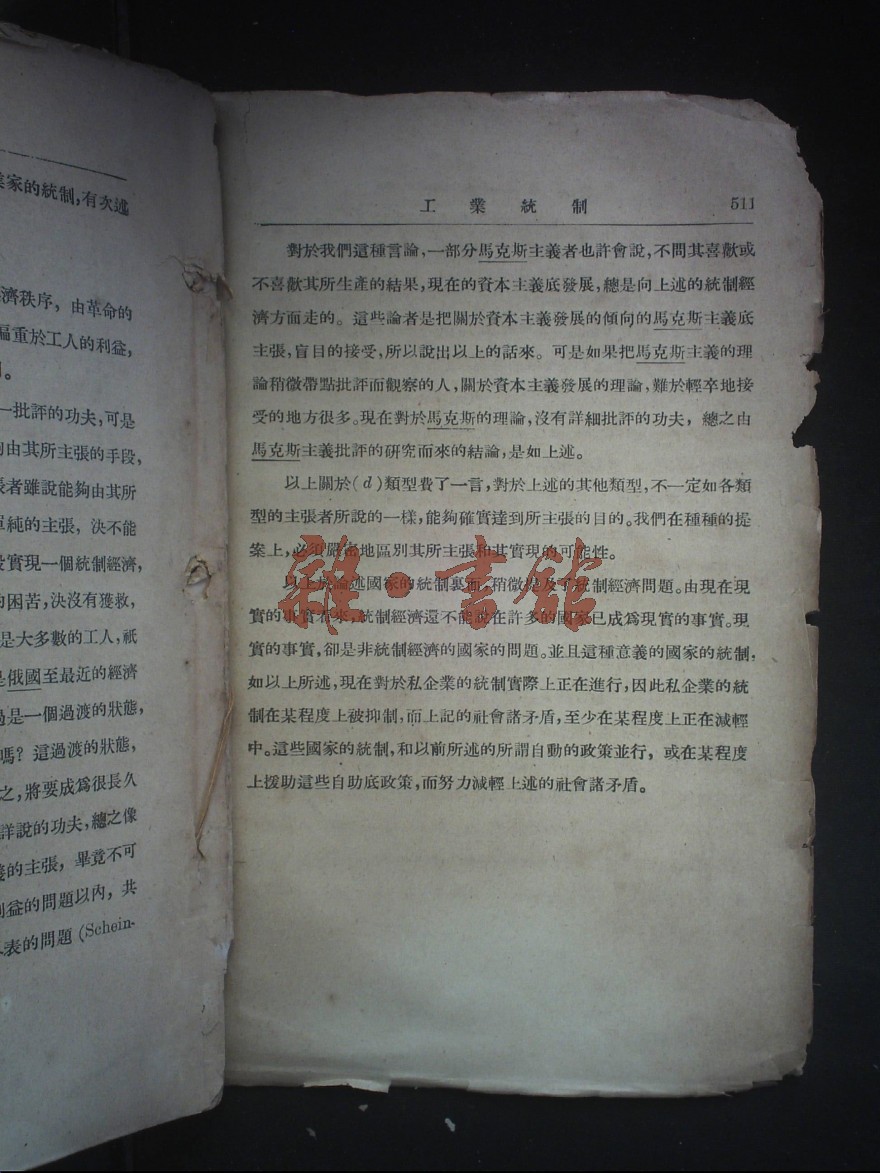 業家的統制,有次述
濟秩序，由革命的
偏重於工人的利益,
一批評的功夫,可是
由其所主張的手段,
張者雖說能夠由其所
單純的主張，決不能
實現一個統制經濟,
的困苦,決沒有獲救,
是大多數的工人,祇
是俄國至最近的經濟
過是一個過渡的狀態,
嗎？這過渡的狀態,
之,將要成爲很長久
詳說的功夫,總之像
的主張，畢竟不可
利益的問題以內，共
表的問題 (Schein-
工業統制 511
對於我們這種言論,一部分馬克斯主義者也許會說,不問其喜歡或
不喜歡其所生產的結果,現在的資本主義底發展,總是向上述的統制經
濟方面走的。這些論者是把關於資本主義發展的傾向的馬克斯主義底
主張,盲目的接受,所以說出以上的話來。可是如果把馬克斯主義的理
論稍微帶點批評而觀察的人,關於資本主義發展的理論,難於輕卒地接
受的地方很多。現在對於馬克斯的理論,沒有詳細批評的功夫，總之由
馬克斯主義批評的研究而來的結論,是如上述。
以上關於(d)類型費了一言,對於上述的其他類型,不一定如各類
型的主張者所說的一樣,能夠確實達到所主張的目的。我們在種種的提
案上,必須嚴密地區別其所主張和其實現的可能性。
以上於論述國家的統制裏面,稍微提及了統制經濟問題。由現在現
實的事實看來,統制經濟還不能說在許多的國家已成爲現實的事實。現
實的事實,卻是非統制經濟的國家的問題。並且這種意義的國家的統制,
如以上所述,現在對於私企業的統制實際上正在進行,因此私企業的統
制在某程度上被抑制,而上記的社會諸矛盾,至少在某程度上正在減輕
中。這些國家的統制,和以前所述的所謂自動的政策並行，或在某程度
上援助這些自助底政策,而努力減輕上述的社會諸矛盾。
雜·書館